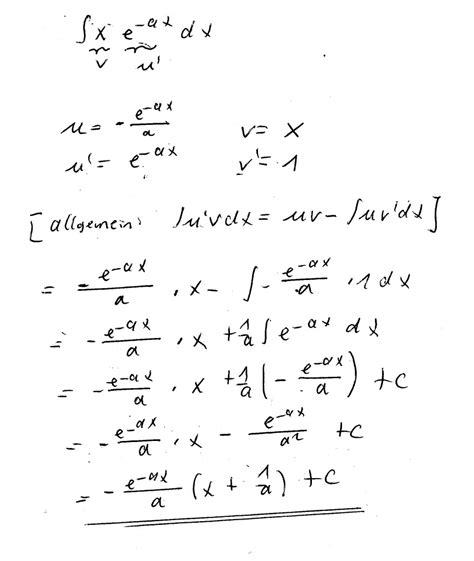 ∫ x e^(-ax) dx
v u'
u = - e^(-ax)/a v = x
u' = e^(-ax) v' = 1
[allgemein: ∫u'vdx = uv - ∫uv'dx]
= - e^(-ax)/a · x - ∫ - e^(-ax)/a · 1 dx
= - e^(-ax)/a · x + 1/a ∫ e^(-ax) dx
= - e^(-ax)/a · x + 1/a (- e^(-ax)/a) + c
= - e^(-ax)/a · x - e^(-ax)/a² + c
= - e^(-ax)/a (x + 1/a) + c